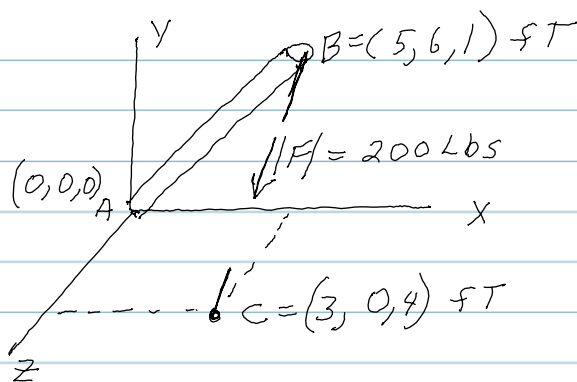 Y
B=(5,6,1) fT
|F|= 200 Lbs
(0,0,0)
A
X
C=(3, 0,4) fT
Z